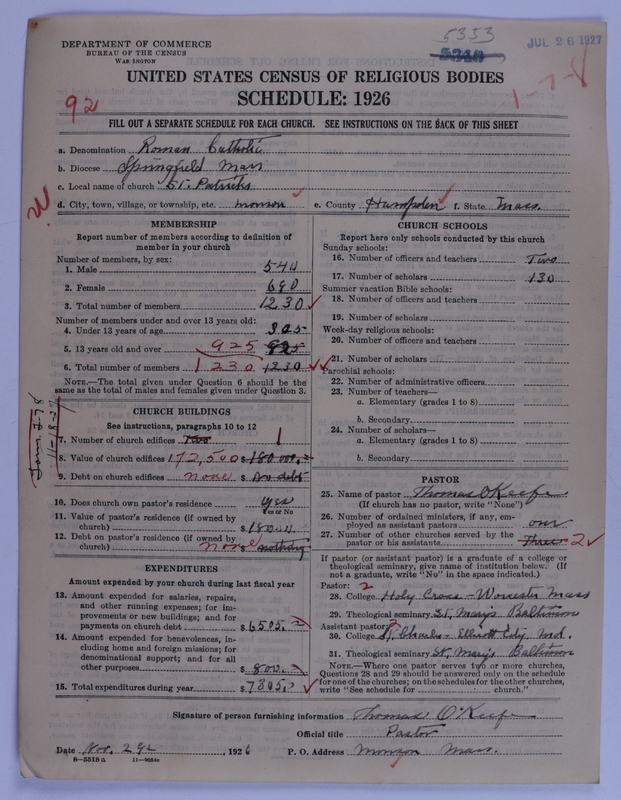 DEPARTMENT OF COMMERCE
BUREAU OF THE CENSUS
WASHINGTON
5353
JUL 26 1927
UNITED STATES CENSUS OF RELIGIOUS BODIES
SCHEDULE: 1926
92
1-7-8
FILL OUT A SEPARATE SCHEDULE FOR EACH CHURCH. SEE INSTRUCTIONS ON THE BACK OF THIS SHEET
a. Denomination Roman Catholic
b. Diocese Springfield Mass
c. Local name of church St. Patricks
d. City, town, village, or township, etc. Monson e. County Hampden f. State Mass.
MEMBERSHIP
Report number of members according to definition of
member in your church
Number of members, by sex:
1. Male 540
2. Female 690
3. Total number of members 1230
Number of members under and over 13 years old:
4. Under 13 years of age 305
5. 13 years old and over 925
6. Total number of members 1230 1230
NOTE.—The total given under Question 6 should be the
same as the total of males and females given under Question 3.
CHURCH BUILDINGS
See instructions, paragraphs 10 to 12
7. Number of church edifices Two 1
8. Value of church edifices 172,500 $ 180 000.
9. Debt on church edifices none $ no debt
10. Does church own pastor's residence? yes
Yes or No
11. Value of pastor's residence (if owned by
church) $
12. Debt on pastor's residence (if owned by
church) none $ nothing
EXPENDITURES
Amount expended by your church during last fiscal year
13. Amount expended for salaries, repairs,
and other running expenses; for im-
provements or new buildings; and for
payments on church debt $ 6505.
14. Amount expended for benevolences, in-
cluding home and foreign missions; for
denominational support; and for all
other purposes $ 800.
15. Total expenditures during year $ 7305.
CHURCH SCHOOLS
Report here only schools conducted by this church
Sunday schools:
16. Number of officers and teachers Two
17. Number of scholars 130
Summer vacation Bible schools:
18. Number of officers and teachers
19. Number of scholars
Week-day religious schools:
20. Number of officers and teachers
21. Number of scholars
Parochial schools:
22. Number of administrative officers
23. Number of teachers—
a. Elementary (grades 1 to 8)
b. Secondary
24. Number of scholars—
a. Elementary (grades 1 to 8)
b. Secondary
PASTOR
25. Name of pastor Thomas O'Keefe
(If church has no pastor, write "None")
26. Number of ordained ministers, if any, em-
ployed as assistant pastors one
27. Number of other churches served by the
pastor or his assistants Three 2
If pastor (or assistant pastor) is a graduate of a college or
theological seminary, give name of institution below. (If
not a graduate, write "No" in the space indicated.)
Pastor: 2
28. College Holy Cross - Worcester Mass
29. Theological seminary St. Marys Baltimore
Assistant pastor:
30. College St. Charles - Ellicott City Md.
31. Theological seminary St. Marys Baltimore
NOTE.—Where one pastor serves two or more churches,
Questions 28 and 29 should be answered only on the schedule
for one of the churches; on the schedules for the other churches,
write "See schedule for church."
Signature of person furnishing information Thomas O'Keefe
Official title Pastor
Date Nov. 29, 1926 P. O. Address Monson Mass.
8—5518 a